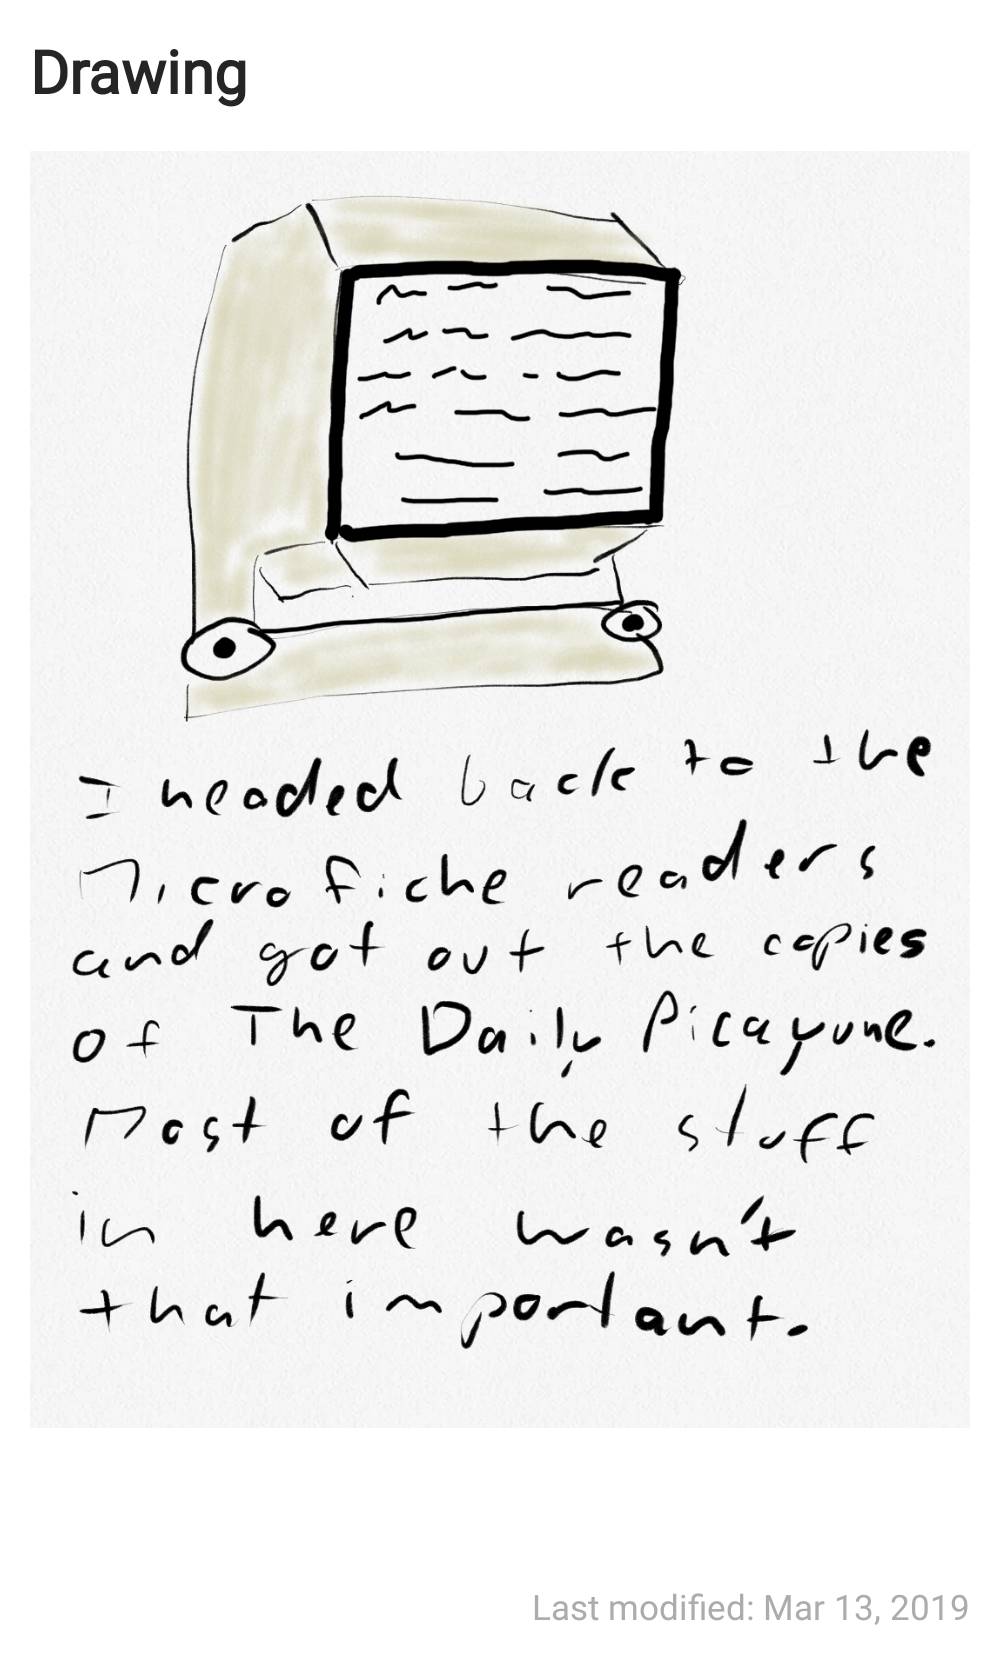 Drawing
I headed back to the
Microfiche readers
and got out the copies
of The Daily Picayune.
Most of the stuff
in here wasn't
that important.
Last modified: Mar 13, 2019